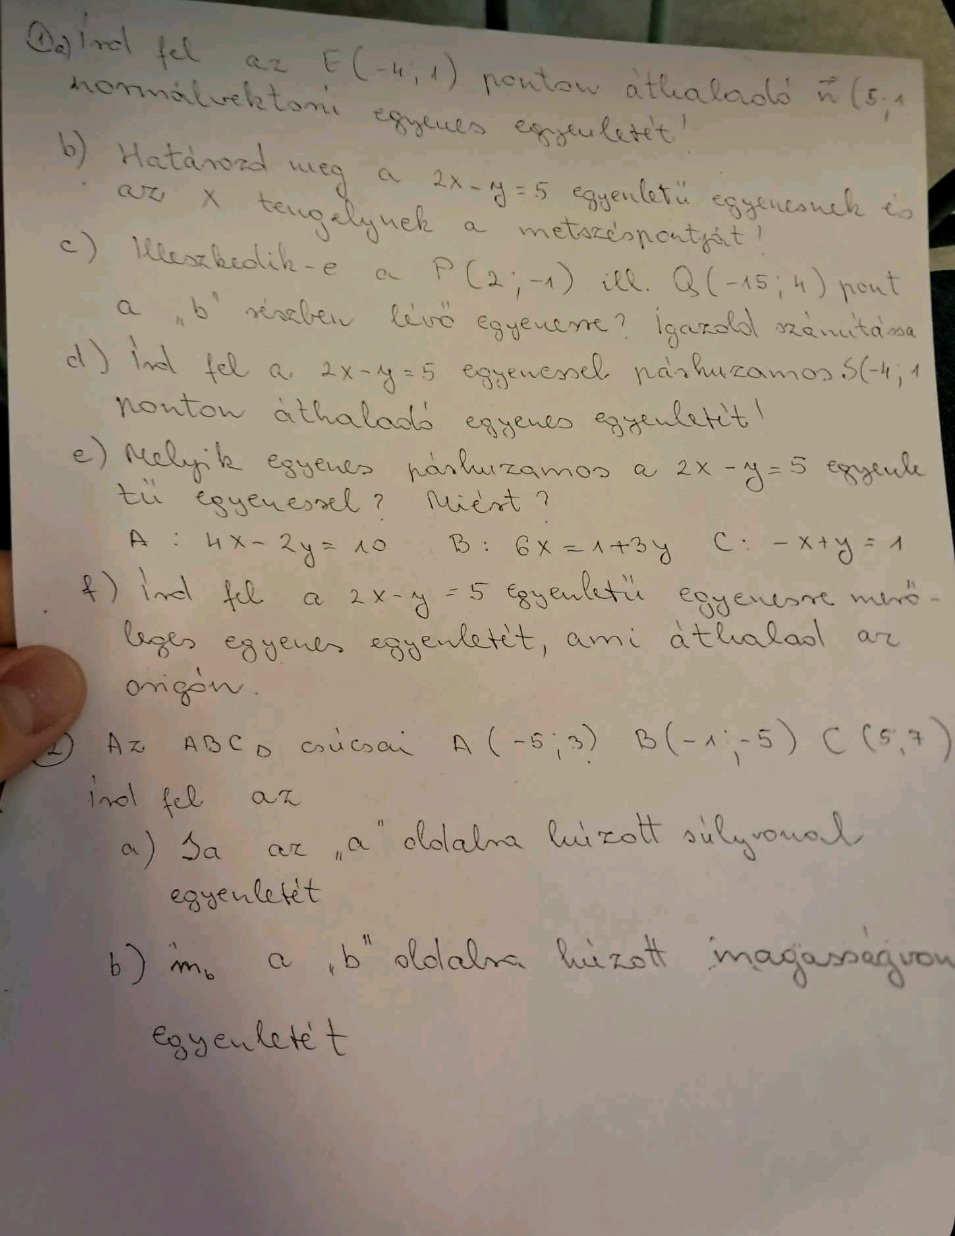 1 a) Írd fel az E(-4; 1) ponton áthaladó n⃗ (5; 1
normálvektorú egyenes egyenletét!
b) Határozd meg a 2x-y=5 egyenletű egyenesnek és
az x tengelynek a metszéspontját!
c) Illeszkedik-e a P(2; -1) ill. Q(-15; 4) pont
a „b" részben lévő egyenesre? Igazold számítássa
d) Írd fel a 2x-y=5 egyenessel párhuzamos S(-4; 1
ponton áthaladó egyenes egyenletét!
e) Melyik egyenes párhuzamos a 2x-y=5 egyenle
tű egyenessel? Miért?
A: 4x-2y=10 B: 6x=1+3y C: -x+y=1
f) Írd fel a 2x-y=5 egyenletű egyenesre merő-
leges egyenes egyenletét, ami áthalad az
origón.
Az ABC△ csúcsai A(-5; 3) B(-1; -5) C(5; 7)
írd fel az
a) Sa az „a" oldalra húzott súlyvonal
egyenletét
b) mb a „b" oldalra húzott magasságvon
egyenletét